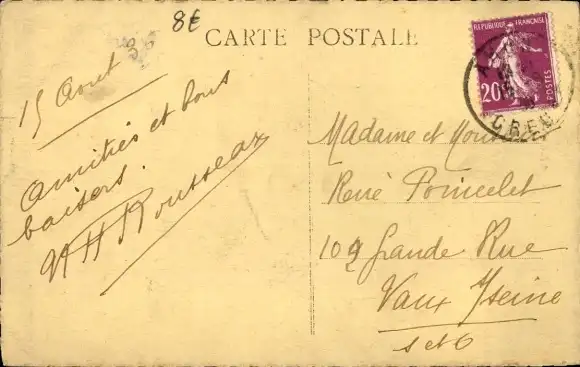 8€
CARTE POSTALE
RÉPUBLIQUE FRANÇAISE
20c
POSTES
15 Aout
Amitiés et bons
baisers.
Rousseaux
Madame et
René Poincelet
109 Grande Rue
Vaux s/Seine
S et O